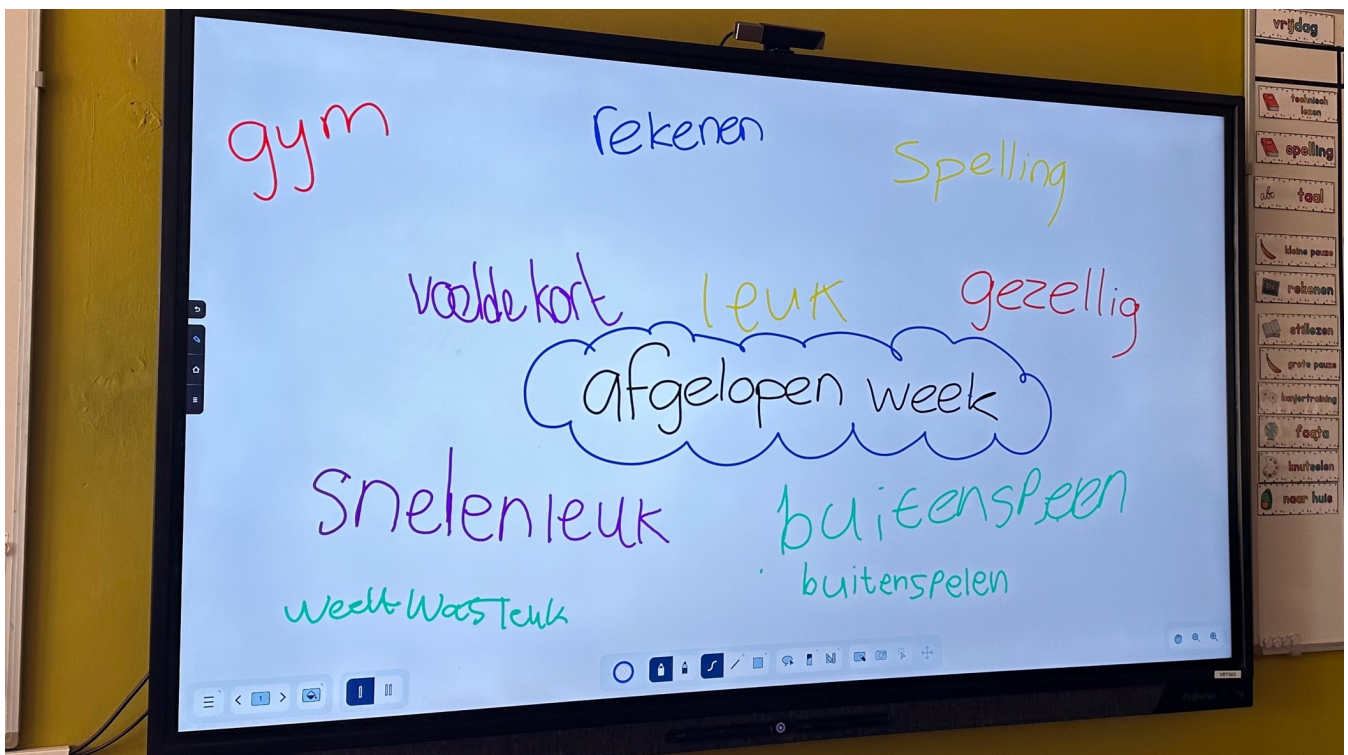 gym
rekenen
Spelling
voelde kort
leuk
gezellig
afgelopen week
snelenleuk
buitenspeen
buitenspelen
weekt was leuk
vrijdag
technisch lezen
spelling
abc taal
kleine pauze
rekenen
stillezen
grote pauze
kanjertraining
faqta
knutselen
naar huis
1